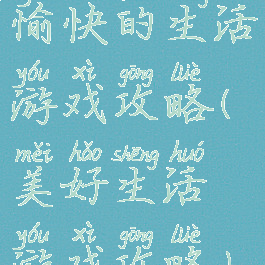 愉快的生活
yóu xì gōng lüè
游戏攻略(
měi hǎo shēng huó
美好生活
yóu xì gōng lüè
游戏攻略)